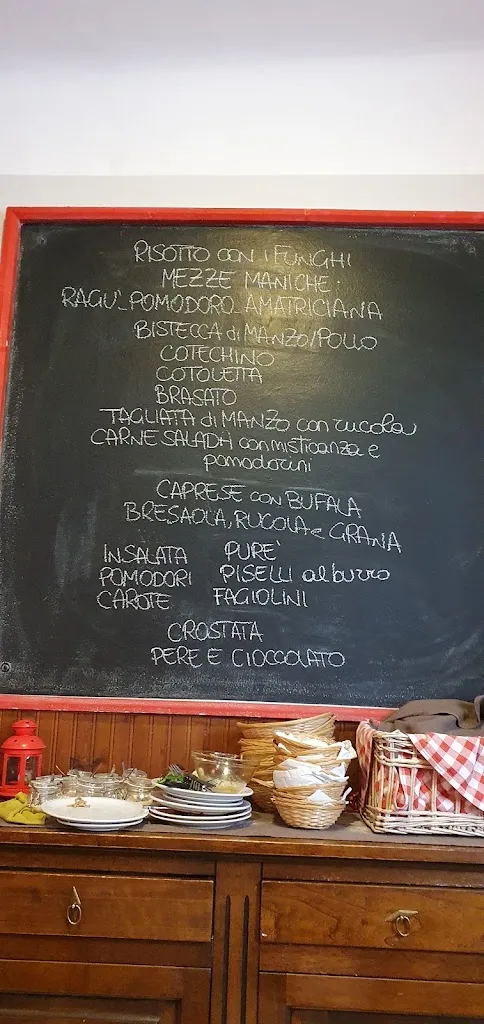 RISOTTO CON I FUNGHI
MEZZE MANICHE:
RAGU'_POMODORO_AMATRICIANA
BISTECCA di MANZO/POLLO
COTECHINO
COTOLETTA
BRASATO
TAGLIATA di MANZO con rucola
CARNE SALADA con misticanza e
pomodorini
CAPRESE con BUFALA
BRESAOLA, RUCOLA e GRANA
INSALATA PURE'
POMODORI PISELLI al burro
CAROTE FAGIOLINI
CROSTATA
PERE E CIOCCOLATO